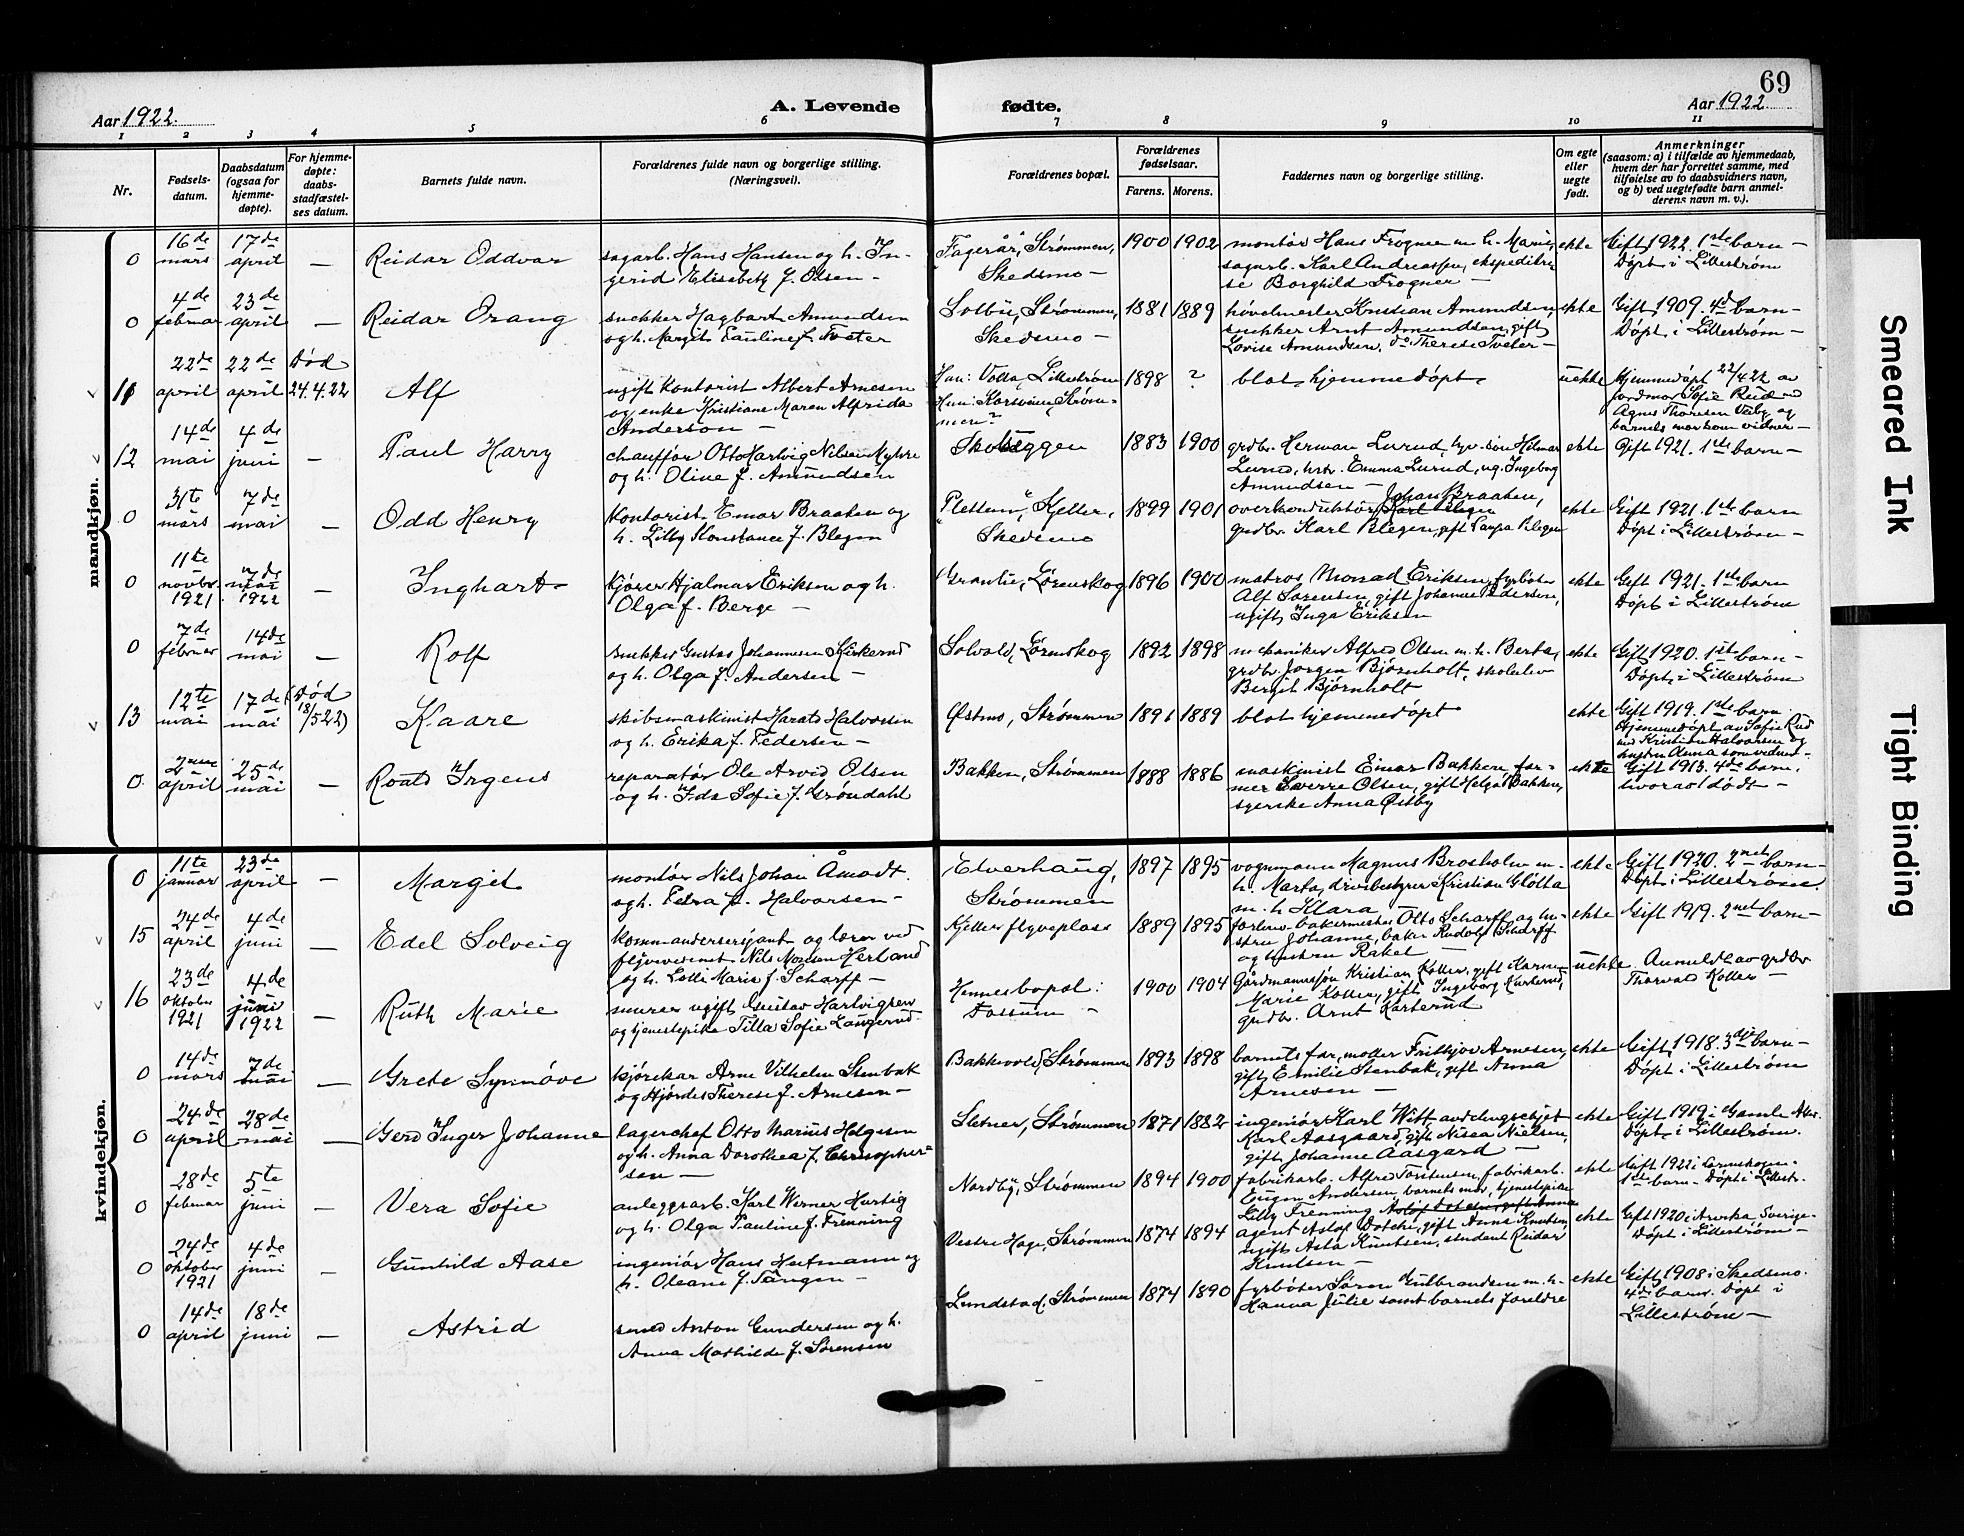 69
Aar 1922.
A. Levende fødte.
Aar 1922.
1 2 3 4 5 6 7 8 9 10 11
Nr.
Fødsels-
datum.
Daabsdatum
(ogsaa for
hjemme-
døpte).
For hjemme-
døpte:
daabs-
stadfæstel-
ses datum.
Barnets fulde navn.
Forældrenes fulde navn og borgerlige stilling.
(Næringsvei).
Forældrenes bopæl.
Forældrenes
fødselsaar.
Farens. Morens.
Faddernes navn og borgerlige stilling.
Om egte
eller
uegte
født.
Anmerkninger
(saasom: a) i tilfælde av hjemmedaab,
hvem der har forrettet samme, med
tilføielse av to daabsvidners navn,
og b) ved uegtefødte barn anmel-
derens navn m. v.).
mandkjøn.
0 16de mars 17de april — Reidar Oddvar
sagarb. Hans Hansen og h. In-
gerid Elisabeth f. Olsen —
"Fagerår", Strømmen,
Skedsmo —
1900 1902
montør Hans Frogner m. h. Marie,
sagarb. Karl Andreassen, ekspeditri-
se Borghild Frogner —
ekte
Gift 1922. 1ste barn —
Døpt i Lillestrøm
0 4de februar 23de april — Reidar Orang
snekker Hagbart Amundsen
og h. Margit Pauline f. Tveter
Solbu, Strømmen,
Skedsmo —
1881 1889
høvelmester Kristian Amundsen,
snekker Arnt Amundsen, gift
Lovise Amundsen, do Therese Tveter —
ekte
Gift 1909. 4de barn —
Døpt i Lillestrøm —
11 22de april 22de april Død 24.4.22 Alf
ugift kontorist Albert Arnesen
og enke Kristiane Maren Alfrida
Anderson —
Han: Volla, Lillestrøm
Hun: Strøm-
men?
1898 ?
blot hjemmedøpt.
uekte
Hjemmedøpt 22/4 22 av
jordmor Sofie Ruud med
Agnes Thoresen og
barnets mor som vidner —
12 14de mai 4de juni — Paul Harry
chauffør Otto Hartvig Nilsen Myhre
og h. Oline f. Amundsen
Skoleggen
1883 1900
grdbr. Herman Lurud, hans søn Hilmar
Lurud, hstr. Emma Lurud, ug. Ingeborg
Amundsen —
ekte
Gift 1921. 1ste barn —
0 31te mars 7de mai — Odd Henry
kontorist Einar Braaten og
h. Lilly Konstance f. Blegen
"Pletten", Kjeller,
Skedsmo
1899 1901
Johan Braaten,
overkonduktør
grdbr. Karl Blegen, gift Blegen
ekte
Gift 1921. 1ste barn
Døpt i Lillestrøm —
0 11te novbr. 1921 7de mai 1922 — Inghart
kjører Hjalmar Eriksen og h.
Olga f. Berge —
Granlie, Lørenskog
1896 1900
matros Monrad Eriksen, fyrbøter
Alf Sørensen, gift Johanne Pedersen,
ugift Inga Eriksen
ekte
Gift 1921. 1ste barn
Døpt i Lillestrøm
0 7de februar 14de mai — Rolf
snekker Gustav Johannesen Kirkerud
og h. Olga f. Andersen —
Solvold, Lørenskog
1892 1898
mekaniker Alfred Olsen m. h. Berta,
grdbr. Jørgen Bjørnholt, skoleelev
Bergit Bjørnholt
ekte
Gift 1920. 1ste barn —
Døpt i Lillestrøm
13 12te mai 17de mai (Død 18/5 22) Kaare
skibsmaskinist Harald Halvorsen
og h. Erika f. Pedersen —
Østmo, Strømmen
1891 1889
blot hjemmedøpt
ekte
Gift 1919. 1ste barn.
Hjemmedøpt av Sofie Ruud
med Kristian Halvorsen og
hustru Anna som vidner —
0 2den april 25de mai — Roald Irgens
reparatør Ole Arvid Olsen
og h. Ida Sofie f. Grøndahl
Bakken, Strømmen
1888 1886
maskinist Einar Bakken, for-
mer Sverre Olsen, gift Helga Bakken,
syerske Anna Østby
ekte
Gift 1913. 4de barn,
hvorav 1 dødt —
kvindekjøn.
0 11te januar 23de april — Margit
montør Nils Johan Åmodt
og h. Petra f. Halvorsen —
Elverhaug,
Strømmen
1897 1895
vognmann Magnus Brosholm m.
h. Marta, drivsbestyrer Kristian Gløtta
m. h. Klara
ekte
Gift 1920. 2net barn —
Døpt i Lillestrøm.
15 24de april 4de juni — Edel Solveig
kommandersersjant og lærer ved
flyvevesenet Nils Monsen Herland
og h. Lolli Marie f. Scharff —
Kjeller flyveplass
1889 1895
forhenv. bakermester Otto Scharff og hu-
stru Johanne, baker Rudolf Scharff
og hustru Rakel —
ekte
Gift 1919. 2net barn —
16 23de oktober 1921 4de juni 1922 — Ruth Marie
murer ugift Gustav Hartvigsen
og tjenestepike Tilla Sofie Langerud.
Hennes bopæl:
Fossum —
1900 1904
Gårdmannssøn Kristian Koller, gift Karen
Marie Koller, gift Ingeborg Karterud,
grdbr. Arnt Karterud
uekte
Anmeldt av grdbr.
Thorvald Koller —
0 14de mars 7de mai — Grete Synnøve
kjørekar Arne Vilhelm Stenbæk
og Hjørdis Therese f. Arnesen —
Bakkevold, Strømmen
1893 1898
barnets far, møller Frithjov Arnesen,
gift Emilie Stenbæk, gift Anna
Arnesen —
ekte
Gift 1918. 3dje barn —
Døpt i Lillestrøm
0 24de april 28de mai — Gerd Inger Johanne
lagerchef Otto Marius Helgesen
og h. Anna Dorothea f. Christopher-
sen —
Sletner, Strømmen
1871 1882
ingeniør Karl Witt, avdelingschef
Karl Aasgaard, gift Nisca Nielsen,
gift Johanne Aasgaard —
ekte
Gift 1919 i Gamle Aker.
Døpt i Lillestrøm.
0 28de februar 5te juni — Vera Sofie
anleggsarb. Karl Werner Hartig
og h. Olga Pauline f. Frenning
Nordby, Strømmen
1894 1900
fabrikarb. Alfred Torstensen, fabrikarb.
Eugen Andersen, barnets mor, tjenestepike
Lilly Frenning
ekte
Gift 1922 i Lørenskogen.
1ste barn. Døpt i Lillestr.
0 24de oktober 1921 4de juni — Gunhild Aase
ingeniør Hans Heitmann og
h. Oleane f. Tangen —
Vestre Hage, Strømmen
1874 1894
agent Asløf Dotche, gift Anna Knutsen,
ugift Asta Knutsen, student Reidar
Knutsen —
ekte
Gift 1920 i Arvika Sverige —
Døpt i Lillestrøm —
0 14de april 18de juni — Astrid
smed Anton Gundersen og h.
Anna Mathilde f. Sørensen
Lundstad, Strømmen
1874 1890
fyrbøter Søren Gulbrandsen m. h.
Hanna Julie samt barnets foreldre
ekte
Gift 1908 i Skedsmo.
4de barn. Døpt i
Lillestrøm —
Smeared Ink
Tight Binding